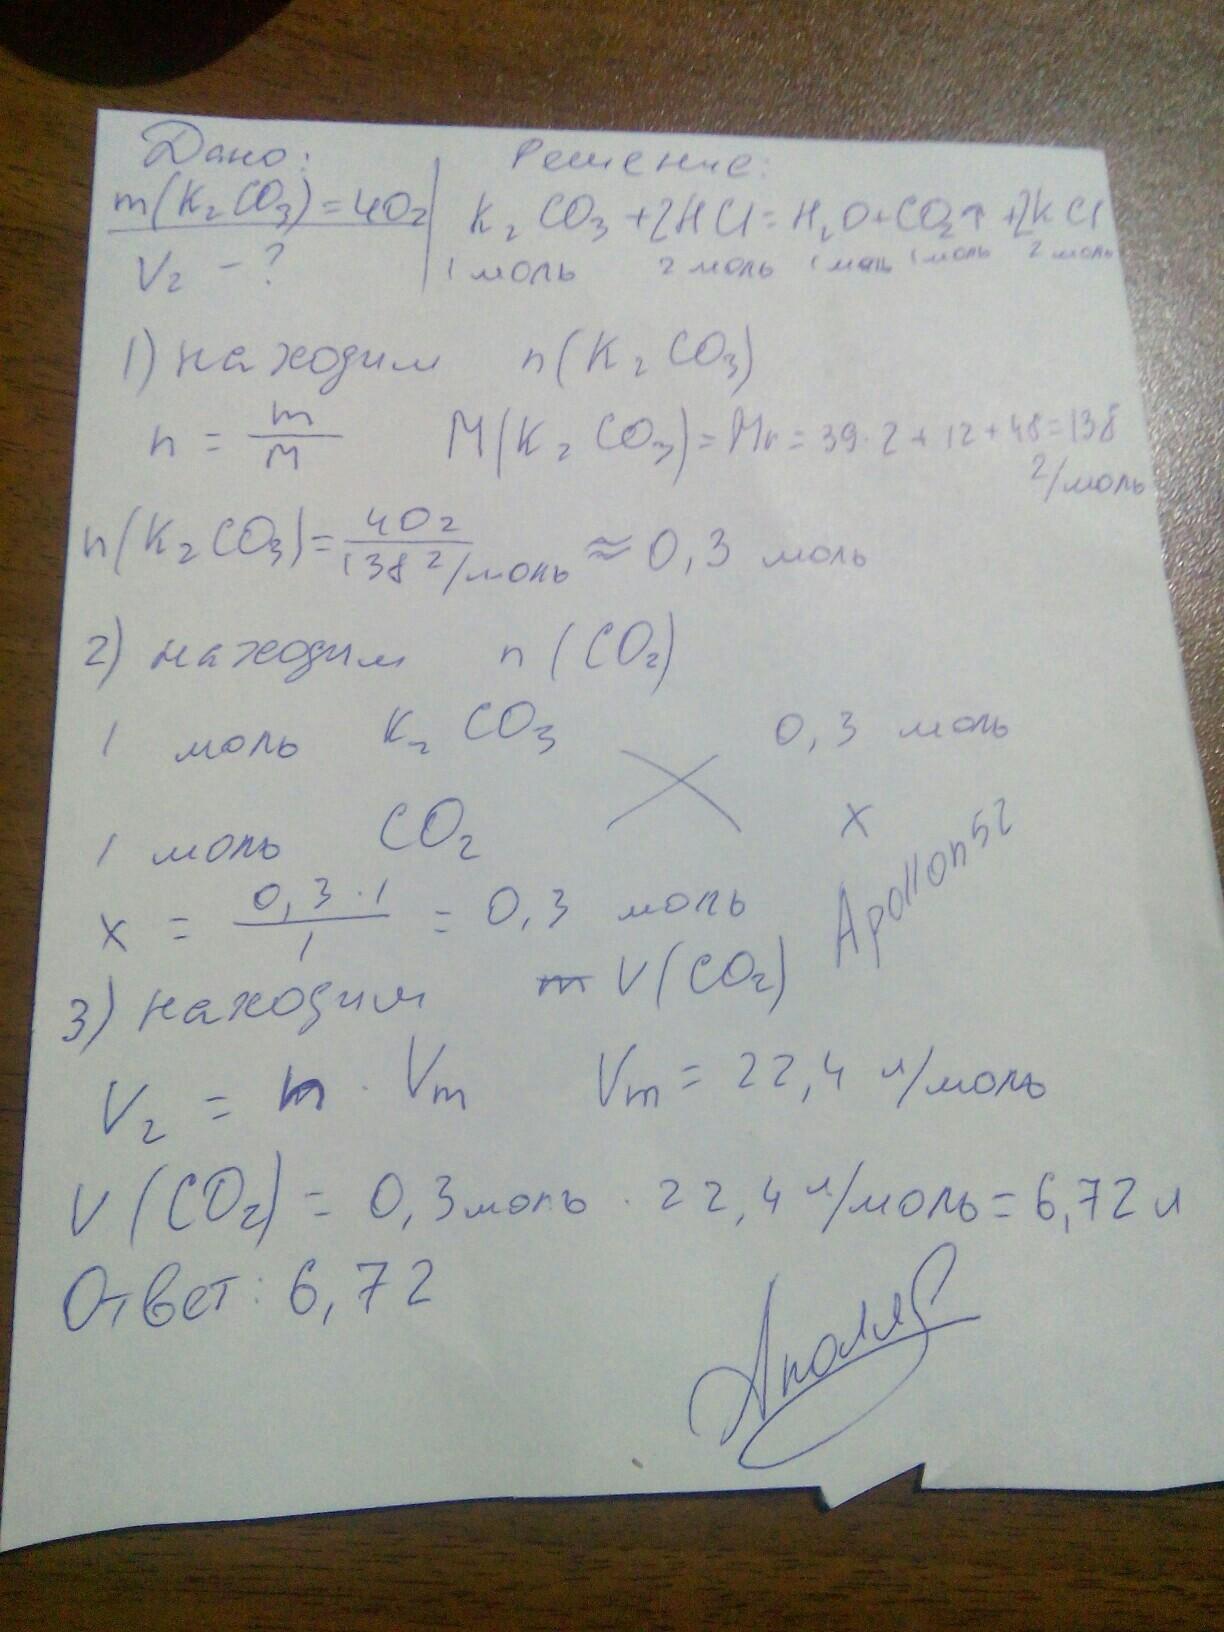 Дано:
m(K₂CO₃)=40г
V₂ - ?
Решение:
K₂CO₃+2HCl=H₂O+CO₂↑+2KCl
1 моль 2 моль 1 моль 1 моль 2 моль
1) находим n(K₂CO₃)
n = m/M M(K₂CO₃)=Mr=39·2+12+48=138
г/моль
n(K₂CO₃)=40г/138г/моль≈0,3 моль
2) находим n(CO₂)
1 моль K₂CO₃ 0,3 моль
1 моль CO₂ x
Apollon52
x = 0,3·1/1 = 0,3 моль
3) находим V(CO₂)
V₂ = n · Vm Vm = 22,4 л/моль
V(CO₂)= 0,3моль · 22,4 л/моль=6,72л
Ответ: 6,72